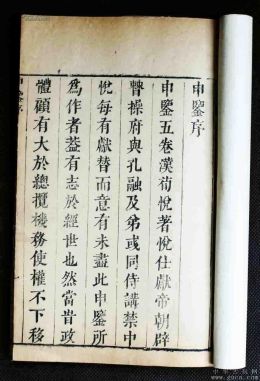 申鑒序
申鑒五卷漢荀悅著悅仕獻帝朝辟
曹操府與孔融及弟彧同侍講禁中
悅每有獻替而意有未盡此申鑒所
爲作者葢有志於經世也然當時政
體顧有大於總攬機務使權不下移